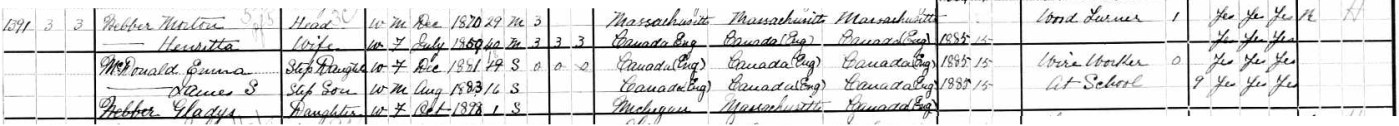 1391 3 3 Webber Morton Head W M Dec 1870 29 M 3 Massachusitts Massachusitts Massachusitts Wood Turner 1 Yes Yes Yes R H
—— Henritta Wife W F July 40 M 3 3 3 Canada Eng Canada (Eng) Canada (Eng) 1885 15 Yes Yes Yes
McDonald Emma Step Daughter W F Dec 1881 S 0 0 0 Canada (Eng) Canada (Eng) Canada (Eng) 1885 15 Wire Worker 0 Yes Yes Yes
—— James S Step Son W M Aug 1883 16 S Canada (Eng) Canada (Eng) Canada (Eng) 1885 15 At School 9 Yes Yes Yes
Webber Gladys Daughter W F Oct 1898 1 S Michigan Massachusitts Canada (Eng)